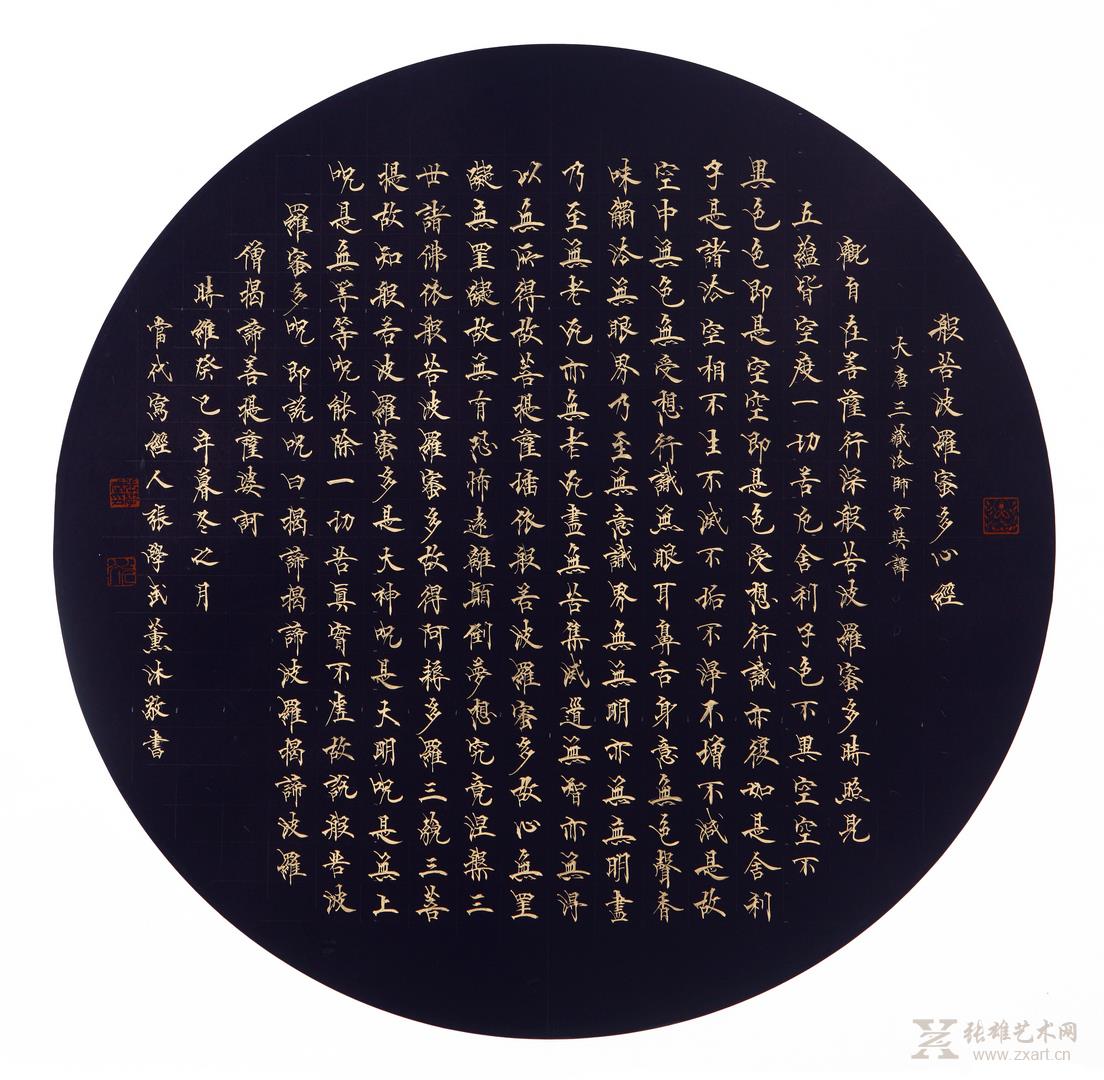 般若波羅蜜多心經
大唐三藏法師玄奘譯
觀自在菩薩行深般若波羅蜜多時照見
五蘊皆空度一切苦厄舍利子色不異空空不
異色色即是空空即是色受想行識亦復如是舍利
子是諸法空相不生不滅不垢不淨不增不減是故
空中無色無受想行識無眼耳鼻舌身意無色聲香
味觸法無眼界乃至無意識界無無明亦無無明盡
乃至無老死亦無老死盡無苦集滅道無智亦無得
以無所得故菩提薩埵依般若波羅蜜多故心無罣
礙無罣礙故無有恐怖遠離顛倒夢想究竟涅槃三
世諸佛依般若波羅蜜多故得阿耨多羅三藐三菩
提故知般若波羅蜜多是大神呪是大明呪是無上
呪是無等等呪能除一切苦真實不虛故說般若波
羅蜜多呪即說呪曰揭諦揭諦波羅揭諦波羅
僧揭諦菩提薩婆訶
時維癸巳年暮冬之月
當代寫經人張學武薰沐敬書
张雄艺术网
www.zxart.cn